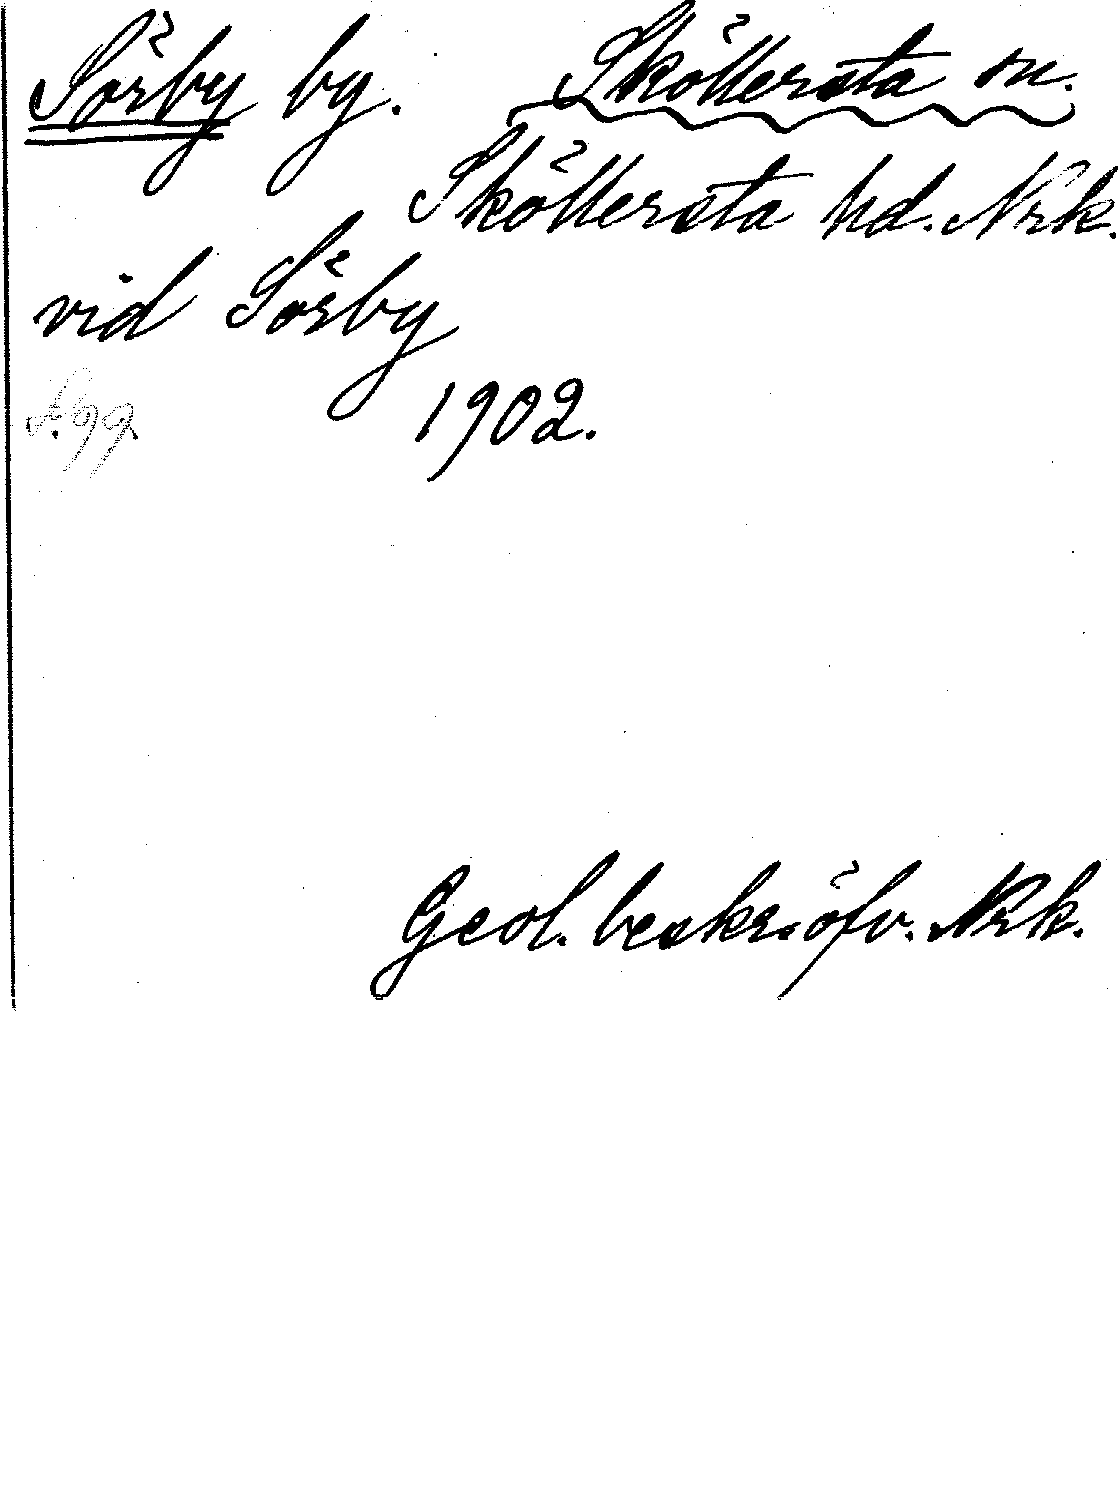 Sörby by. Sköllersta sn.
Sköllersta hd. Nrk.
vid Sörby
s. 99.
1902.
Geol. beskr. öfv. Nrk.